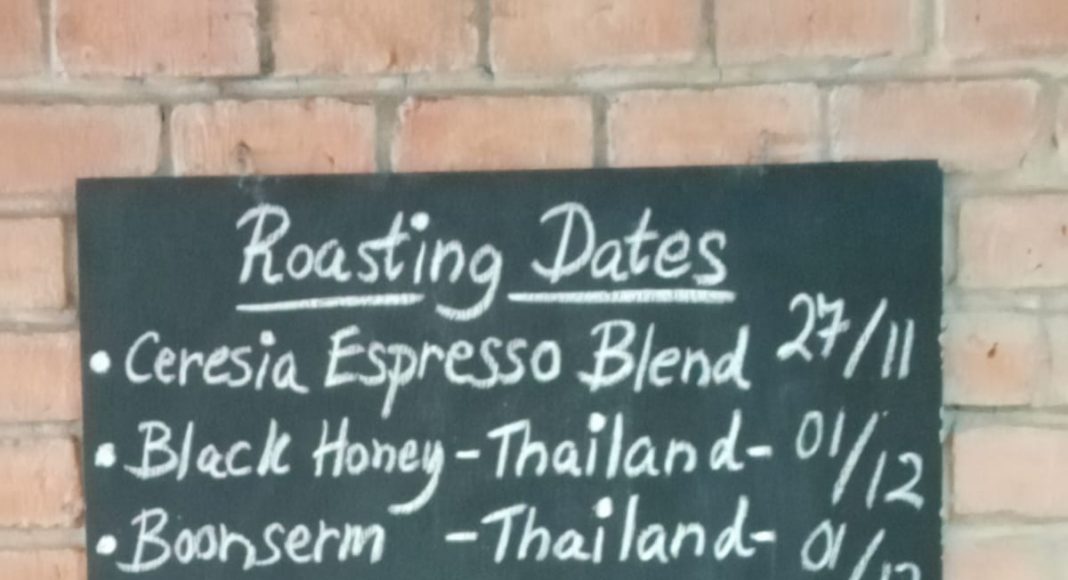 Roasting Dates
• Ceresia Espresso Blend 27/11
• Black Honey - Thailand - 01/12
• Boonserm - Thailand - 01/12